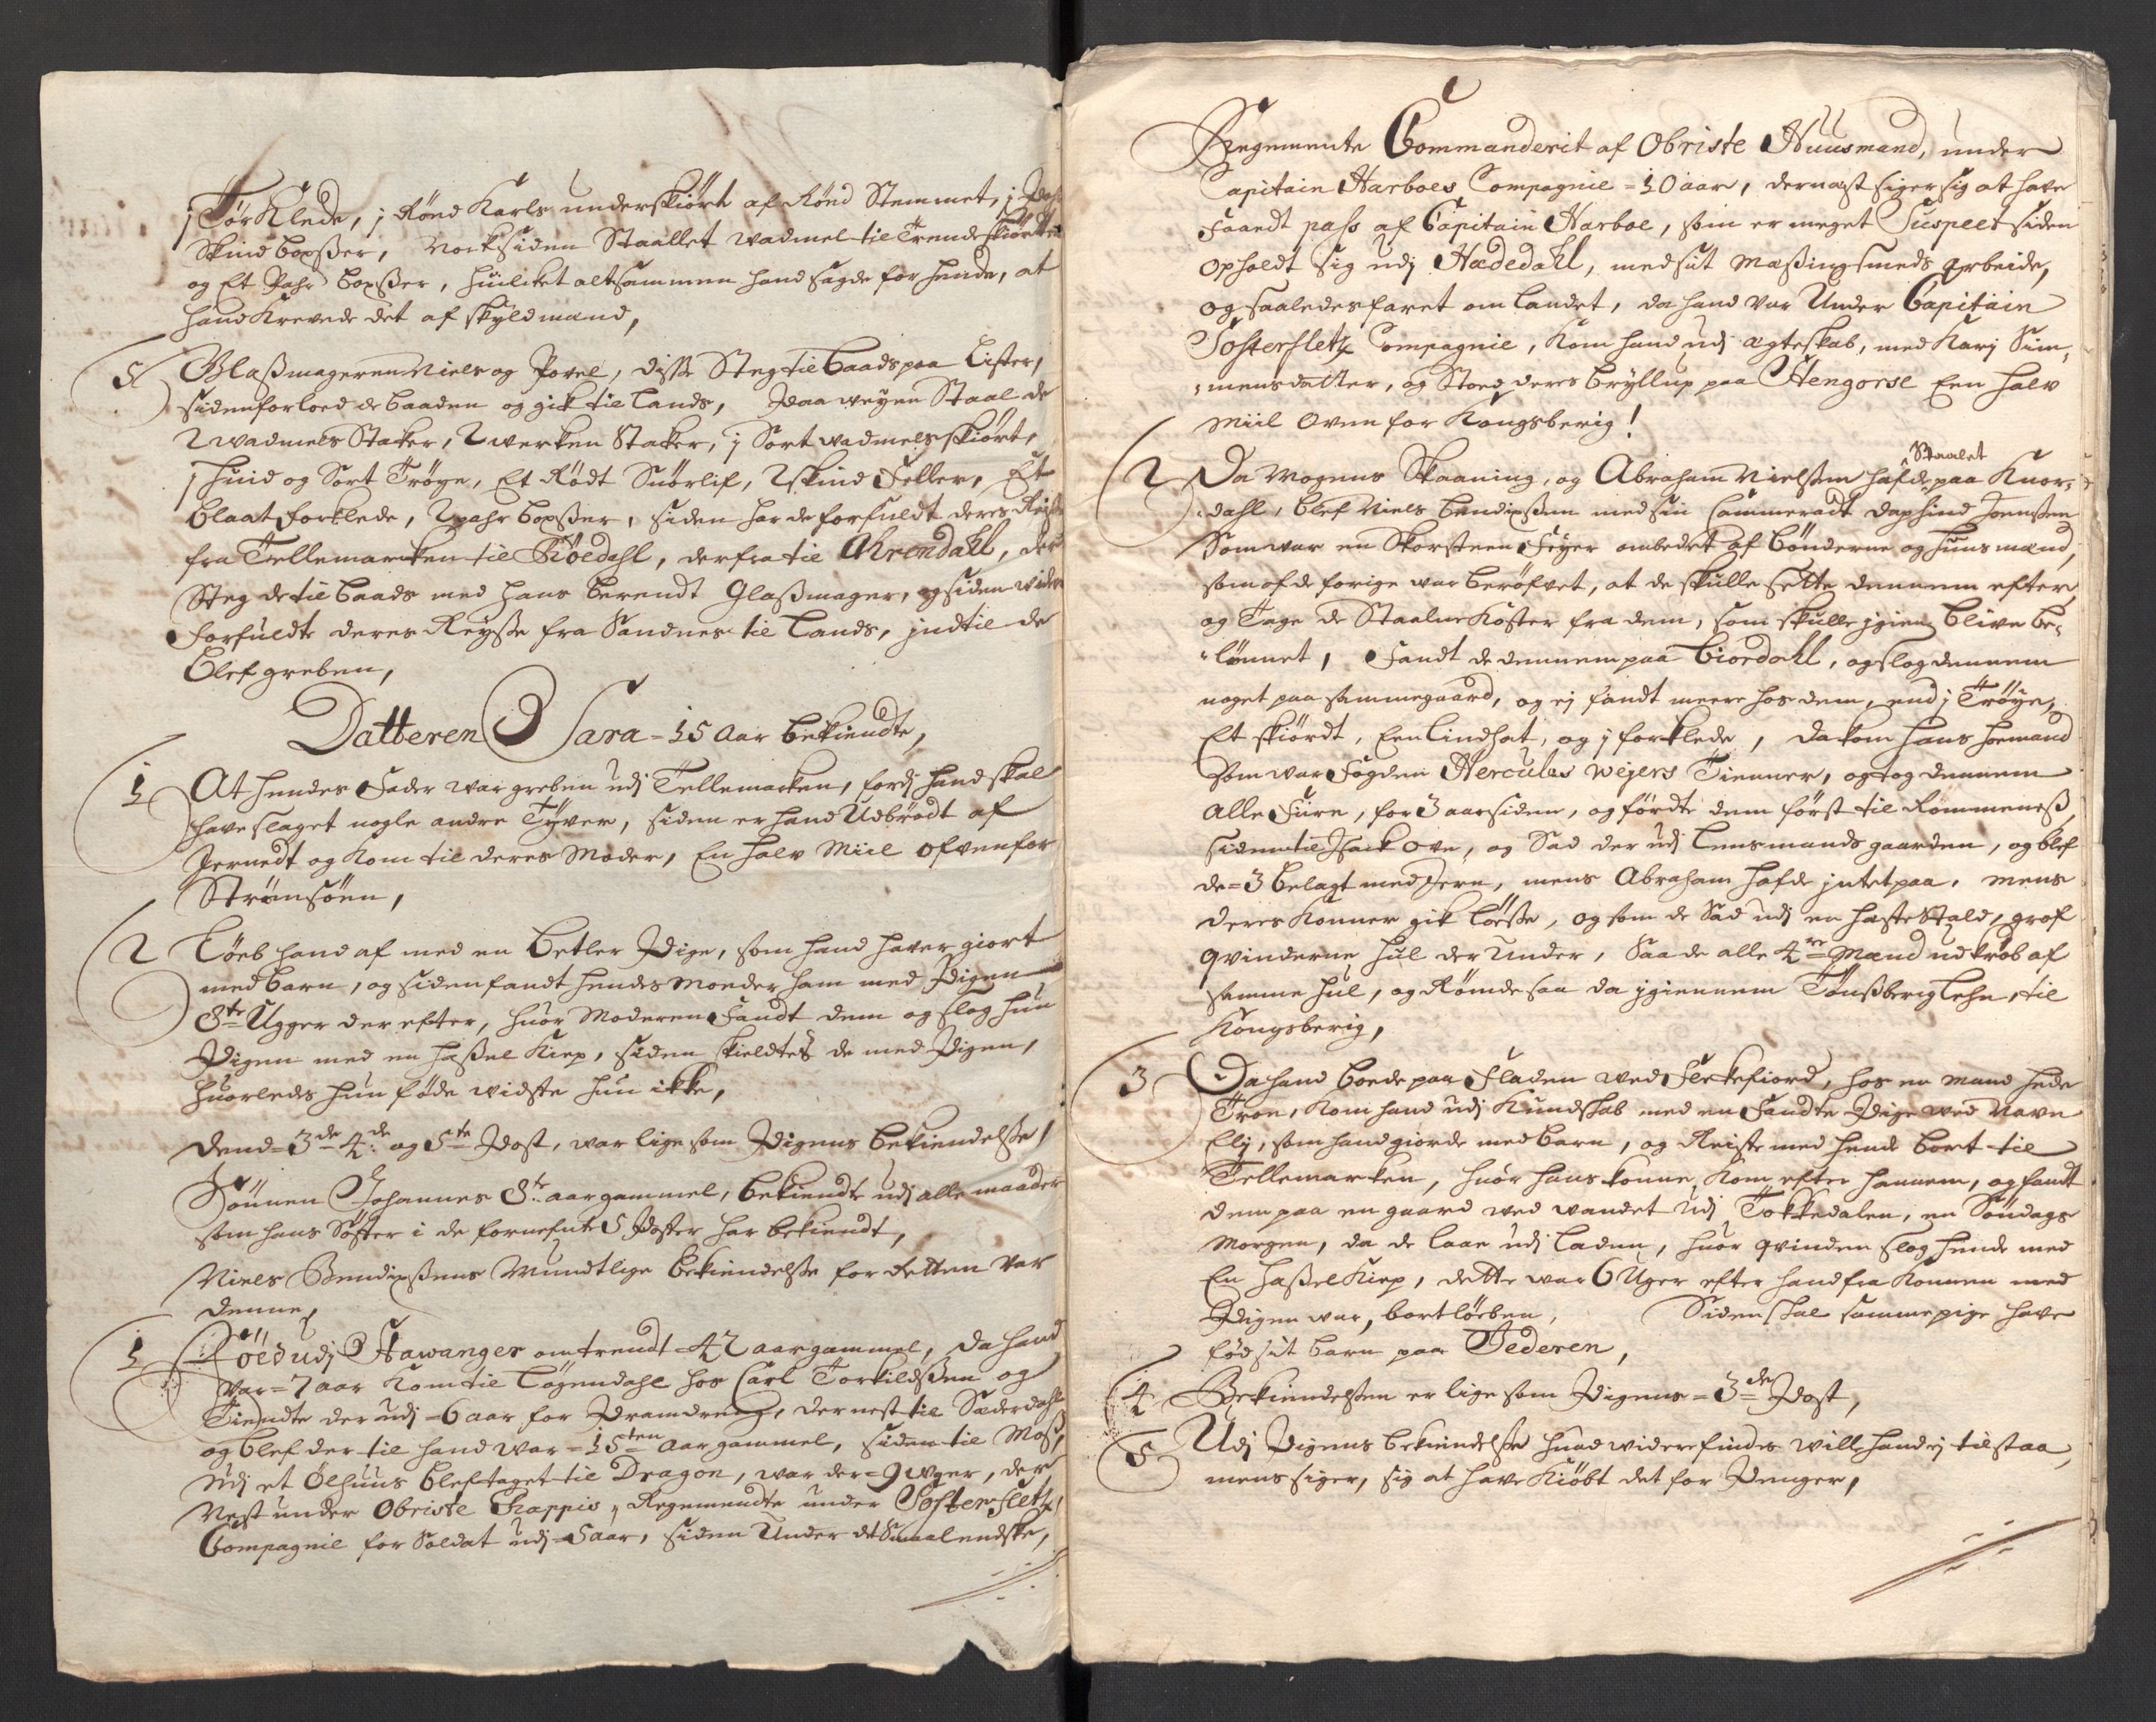 j Tør Klede, j Rönd Karls underskiört af Rönd Stemmet, j
Skind boxsßer, Nock siden Staallet wadmel til Trende skiörtter
og Et Pahr boxsßer, huilcket altsammen hand sagde for hende, at
hand Krevede det af skyldmænd,
5 Glaßmageren Niels og Povel, disse Steg til baads paa Lister,
siden forloed de baaden og gik til Lands, Paa weyen Staal de
2 wadmels Stacker, 2 werken Stacker, j Sort wadmels skiört,
j huid og Sort Tröye, Et Rödt Snörlif, 2 skind Feller, Et
blaat forklede, 2 pahr boxsßer, siden har de forfuldt deres Reise
fra Tellemarcken til Röedahl, derfra til Arendahl, der
Steg de til baads med Hans Berendt Glaßmager, og siden widere
forfuldte deres Reysße fra Sandnes til Lands, jndtil de
blef greben,
Datteren Sara - 15 Aar bekiendte,
1 At hendes Fader war greben udj Tellemarken, fordj hand skal
have slaget nogle andre Tyver, siden er hand Udbrödt af
Jernedt og Kom til deres Moder, En halv Miil ofvenfor
Strömsöen,
2 Löeb hand af med en betler Pige, som hand haver giort
med barn, og siden fandt hendes Moeder ham med Pigen
8te Ugger der efter, huor Moderen Fandt dem og slog hun
Pigen med en haßel Kiep, siden skieldtes de med Pigen,
huorledes hun föde widste hun ikke,
Dend = 3de 4de: og 5te Post, war lige som Pigens bekiendelsße,
Sönnen Johannes 8te: aar gammel, bekiendte udj alle maader
som hans Söster i de fornefnte 5 Poster har bekiendt,
Niels Bendixsßens Mundtlige bekiendelsße for Retten var
denne,
1 Föed udj Stawanger omtrendt = 42 aar gammel, da hand
Var = 7 aar Kom til Lögendahl hos Carl Torkildsßen og
Tiendte der udj = 6 aar for Dramdreng, der nest til Sæderdahl
og blef der til hand war = 15ten aar gammel, siden til Moß,
Udj et Ölhuus blef taget til Dragon, war der = 9 Uger, der
Nest under Obriste Chappis Regemendte under Tostersletz
Compagnie for Soldat udj = 5 aar, siden Under det Smaalendske,
Regemente Commanderit af Obriste Huusmand, under
Capitain Harboes Compagnie = 10 aar, dernæst siger sig at have
faaedt pass af Capitain Harboe, som er meget Suspect siden
opholdt sig udj Hædedahl, med sit Meßingsmeds Arbeide,
og saaledes faret om Landet, da hand var Under Capitain
Tostersletz Compagnie, Kom hand udj ægteskab, med Karj Sim,
,,mensdatter, og Stoed deres bryllup paa Stengorsl Een halv
Miil oven for Kongsberig!
2 Da Mogens Skaaning, og Abraham Nielsßen hafde Staalet paa Knor,
,,dahl, blef Niels Bendixsßen med sin Cammeradt Daphind Joensßen
Som war en Skorsteen Feyer ombedet af bönderne og huusmænd,
som af de forige war beröfvet, at de skulle sette dennem efter,
og Tage de Staalne Koster fra dem, som skulle jgien blive be,
,,lönnet, Fandt de dennem paa Giordahl, og slog dennem
noget paa samme gaard, og ej fandt meere hos dem, end j Tröye,
Et skiördt, Een Lindhat, og j forklede, da kom Hans Hoemand
som war Fogden Hercules Weyers Tienner, og tog dennem
alle Fiire, for 3 aar siden, og förde dem först til Rommenes,
siden til Isack Ove, og Sad der udj Lensmands gaarden, og blef
de = 3 belagt med Jern, mens Abraham hafde jntet paa. mens
deres Konner gik Löesße, og som de Sad udj en hæste Stald, grof
qvinderne hul der Under, Saa de alle 4re Mænd udkröb af
samme hul, og Römde saa da jgiennem Tönsßberig Lehn, til
Kongsberig,
3 Da hand boede paa Fladen ved Fleckefiord, hos en Mand hede
Tron, Kom hand udj Kundskab med en Fandte Pige ved Navn
Elj, som hand giorde med barn, og Reiste med hende bort til
Tellemarken, huor hans Konne, Kom efter hannem, og fandt
dem paa en gaard ved wandet udj Tokkedalen, en Söndags
Morgen, da de laae udj Laden, huor qvinden slog hende med
En haßel Kiep, dette war 6 Uger efter hand fra Konnen med
Pigen war, bortlöeben, Siden skal samme pige have
föd sit barn paa Jederen,
4 Bekiendelsßen er lige som Pigens = 3de Post,
5 Udj Pigens bekiendelsße huad widere findes will hand ej tilstaa,
mens siger, sig at have Kiöbt det for Penger,